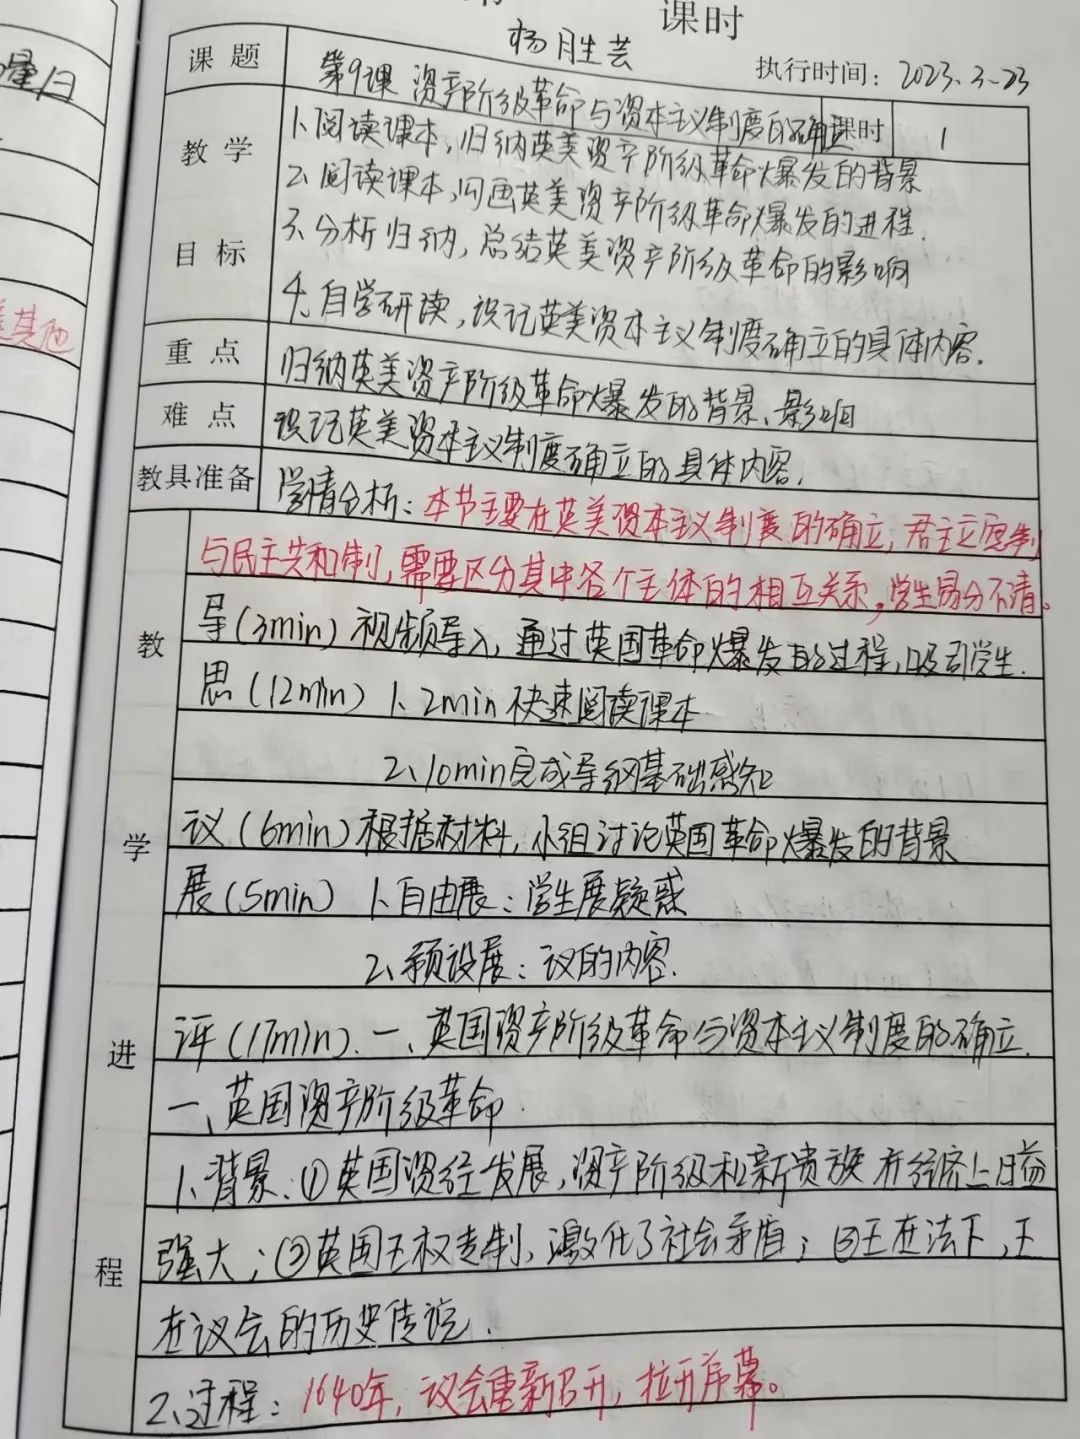 课时
杨胜芸
执行时间：2023.3-23
星/日
课题
第9课 资产阶级革命与资本主义制度的确立
课时
1
教学目标
1、阅读课本，归纳英美资产阶级革命爆发的背景
2、阅读课本，勾画英美资产阶级革命爆发的进程.
3、分析归纳，总结英美资产阶级革命的影响
4、自学研读，识记英美资本主义制度确立的具体内容.
其他
重点
归纳英美资产阶级革命爆发的背景、影响
难点
识记英美资本主义制度确立的具体内容.
教具准备
学情分析：本节主要在英美资本主义制度的确立，君主立宪制
教学进程
与民主共和制，需要区分其中各个主体的相互关系，学生易分不清。
导(3min) 视频导入，通过英国革命爆发的过程，吸引学生.
思(12min) 1、2min快速阅读课本
2、10min完成导纲基础感知
议(6min)根据材料，小组讨论英国革命爆发的背景
展(5min) 1、自由展：学生展疑惑
2、预设展：议的内容.
评(17min). 一、英国资产阶级革命与资本主义制度的确立.
一、英国资产阶级革命.
1、背景：①英国资经发展，资产阶级和新贵族在经济上日益
强大；②英国王权专制，激化了社会矛盾；③王在法下，王
在议会的历史传统.
2、过程：1640年，议会重新召开，拉开序幕。